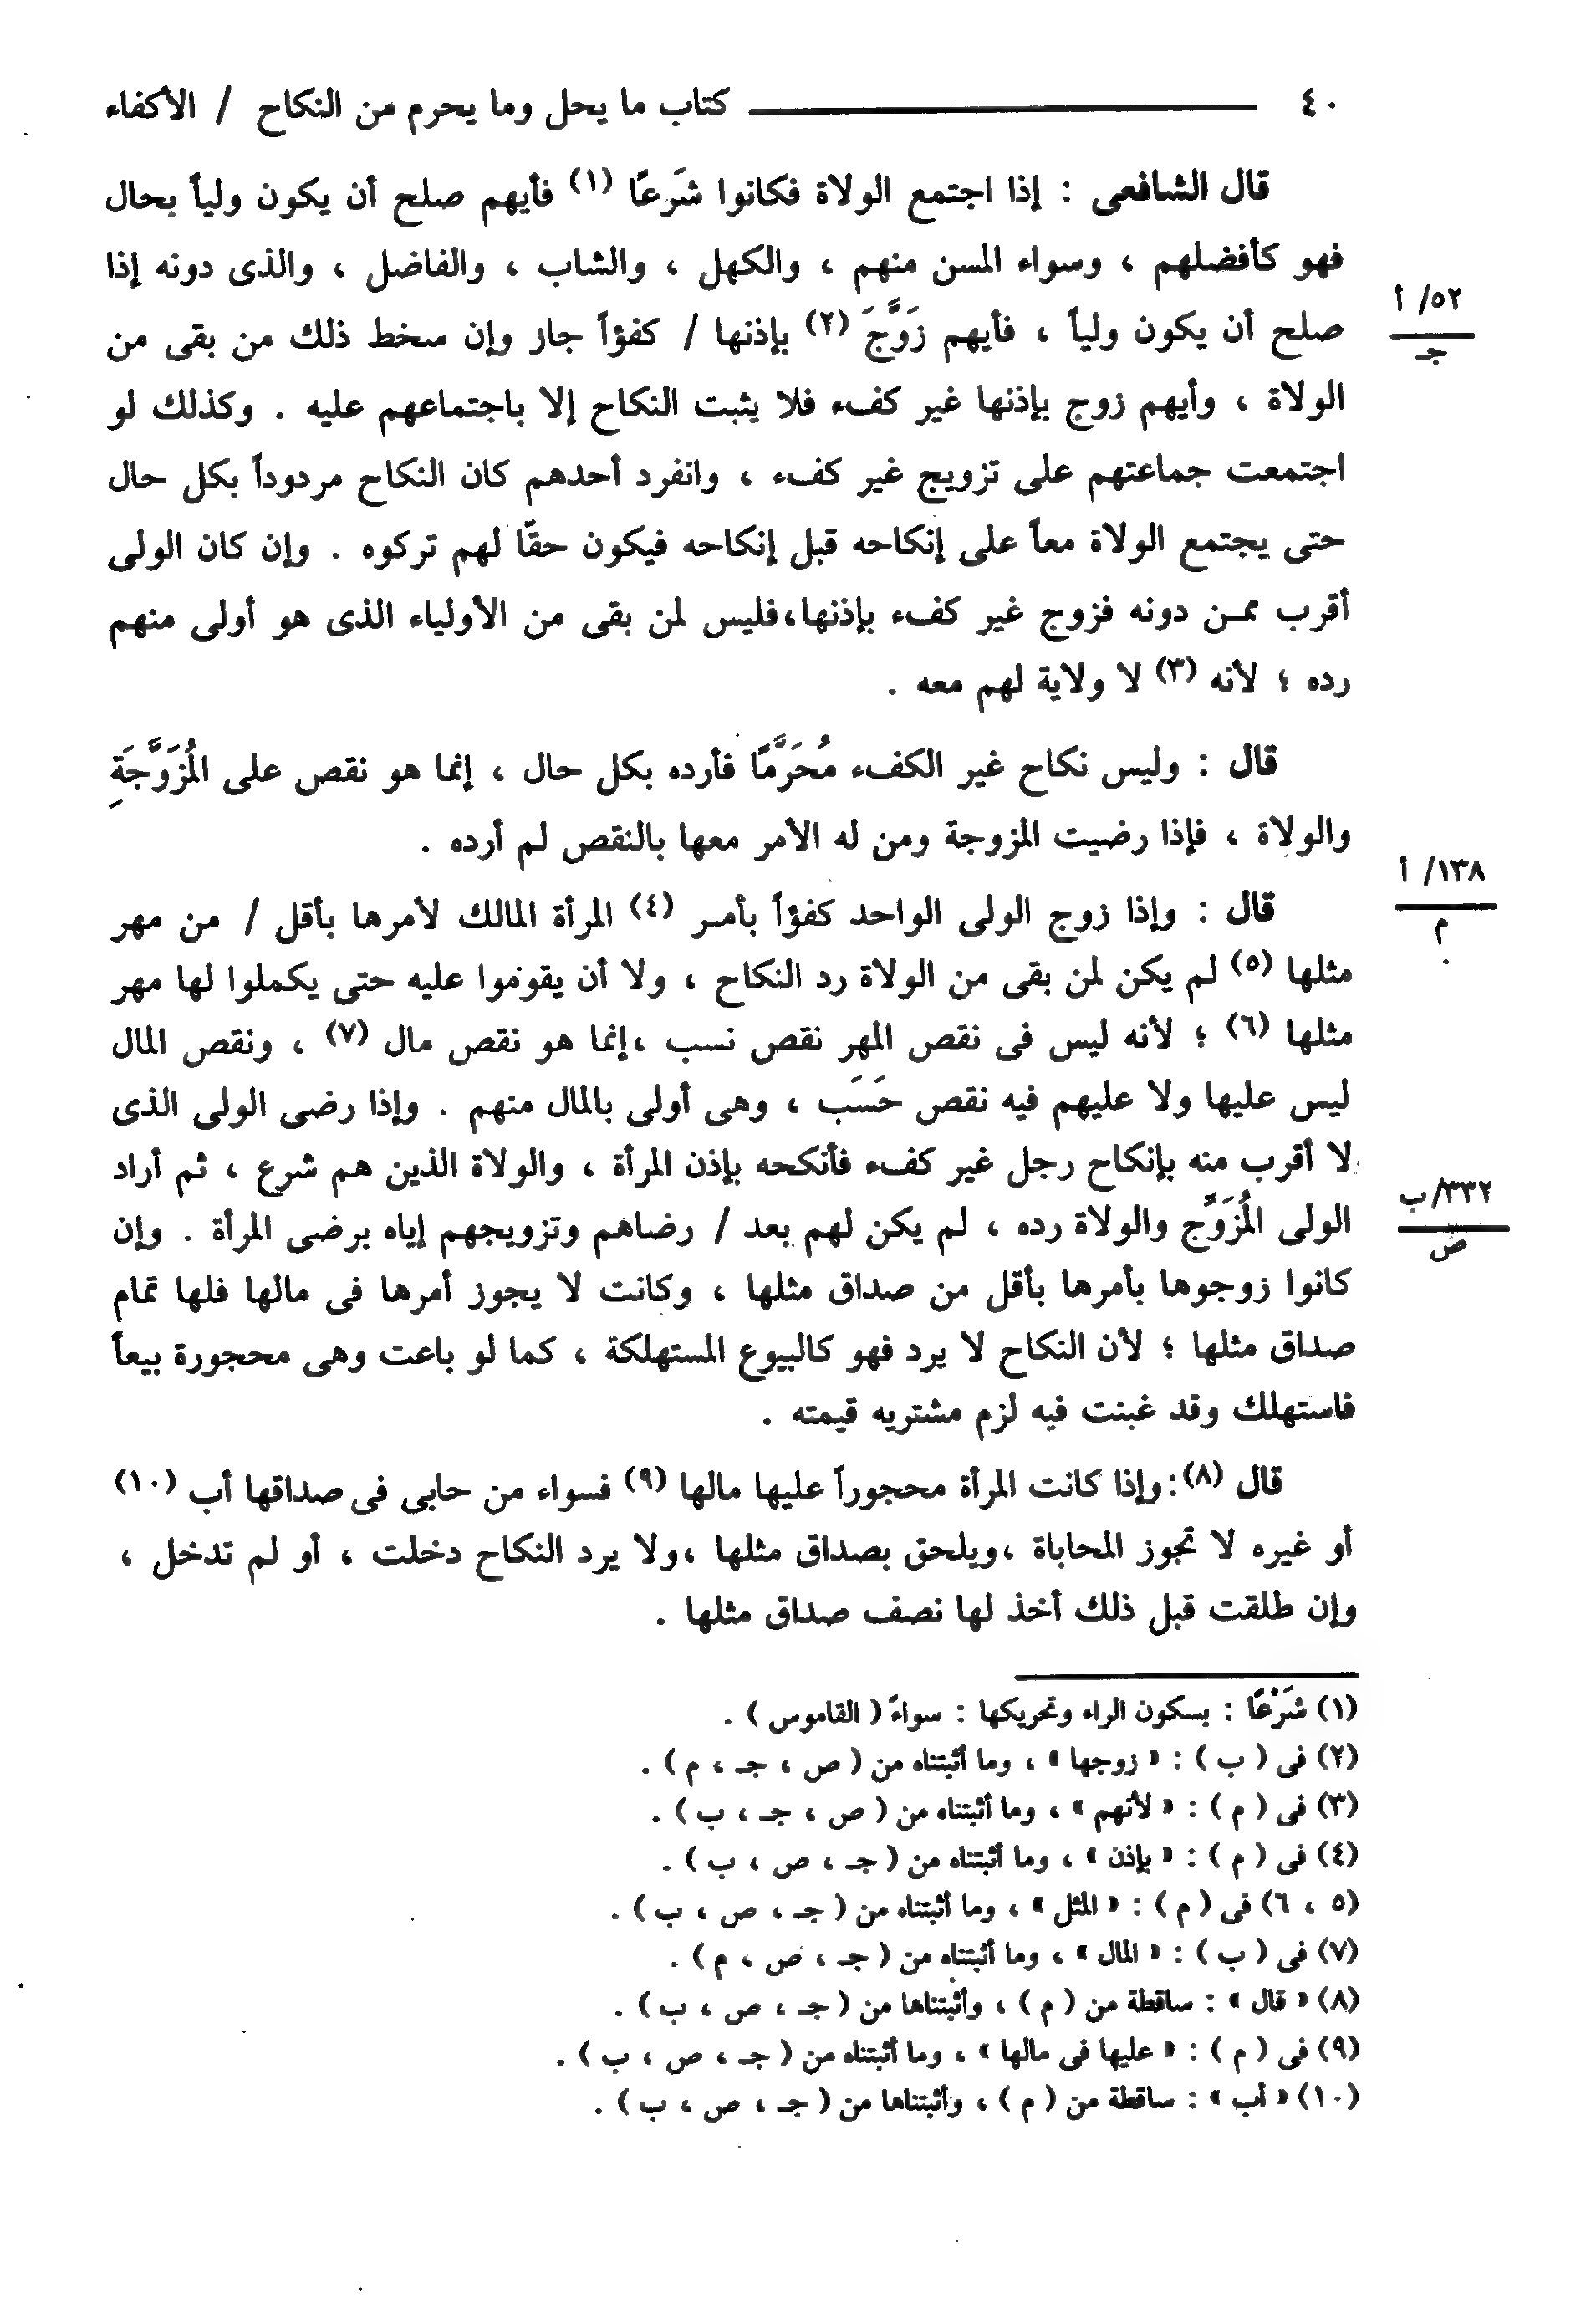 ٤٠ كتاب ما يحل وما يحرم من النكاح / الأكفاء
قال الشافعى : إذا اجتمع الولاة فكانوا شَرَعًا (١) فأيهم صلح أن يكون ولياً بحال
فهو كأفضلهم ، وسواء المسن منهم ، والكهل ، والشاب ، والفاضل ، والذى دونه إذا
٥٢/ أ
جـ
صلح أن يكون ولياً ، فأيهم زَوَّجَ (٢) بإذنها / كفؤاً جاز وإن سخط ذلك من بقى من
الولاة ، وأيهم زوج بإذنها غير كفء فلا يثبت النكاح إلا باجتماعهم عليه . وكذلك لو
اجتمعت جماعتهم على تزويج غير كفء ، وانفرد أحدهم كان النكاح مردوداً بكل حال
حتى يجتمع الولاة معاً على إنكاحه قبل إنكاحه فيكون حقًا لهم تركوه . وإن كان الولى
أقرب ممـن دونه فزوج غير كفء بإذنها،فليس لمن بقى من الأولياء الذى هو أولى منهم
رده ؛ لأنه (٣) لا ولاية لهم معه .
قال : وليس نكاح غير الكفء مُحَرَّمًا فأرده بكل حال ، إنما هو نقص على المُزَوَّجَةِ
والولاة ، فإذا رضيت المزوجة ومن له الأمر معها بالنقص لم أرده .
١٣٨/ أ
م
قال : وإذا زوج الولى الواحد كفؤاً بأمـر (٤) المرأة المالك لأمرها بأقل / من مهر
مثلها (٥) لم يكن لمن بقى من الولاة رد النكاح ، ولا أن يقوموا عليه حتى يكملوا لها مهر
مثلها (٦) ؛ لأنه ليس فى نقص المهر نقص نسب ،إنما هو نقص مال (٧) ، ونقص المال
ليس عليها ولا عليهم فيه نقص حَسَب ، وهى أولى بالمال منهم . وإذا رضى الولى الذى
لا أقرب منه بإنكاح رجل غير كفء فأنكحه بإذن المرأة ، والولاة الذين هم شرع ، ثم أراد
٣٣٢/ب
ص
الولى المُزَوِّج والولاة رده ، لم يكن لهم بعد / رضاهم وتزويجهم إياه برضى المرأة . وإن
كانوا زوجوها بأمرها بأقل من صداق مثلها ، وكانت لا يجوز أمرها فى مالها فلها تمام
صداق مثلها ؛ لأن النكاح لا يرد فهو كالبيوع المستهلكة ، كما لو باعت وهى محجورة بيعاً
فاستهلك وقد غبنت فيه لزم مشتريه قيمته .
قال (٨):وإذا كانت المرأة محجوراً عليها مالها (٩) فسواء من حابى فى صداقها أب (١٠)
أو غيره لا تجوز المحاباة ،ويلحق بصداق مثلها ،ولا يرد النكاح دخلت ، أو لم تدخل ،
وإن طلقت قبل ذلك أخذ لها نصف صداق مثلها .
(١) شَرْعًا : بسكون الراء وتحريكها : سواءً ( القاموس ) .
(٢) فى ( ب ) : « زوجها » ، وما أثبتناه من ( ص ، جـ ، م ) .
(٣) فى ( م ) : « لأنهم » ، وما أثبتناه من ( ص ، جـ ، ب ) .
(٤) فى ( م ) : « بإذن » ، وما أثبتناه من ( جـ ، ص ، ب ) .
(٥ ، ٦) فى ( م ) : « المثل » ، وما أثبتناه من ( جـ ، ص ، ب ) .
(٧) فى ( ب ) : « المال » ، وما أثبتناه من ( جـ ، ص ، م ) .
(٨) « قال » : ساقطة من ( م ) ، وأثبتناها من ( جـ ، ص ، ب ) .
(٩) فى ( م ) : « عليها فى مالها » ، وما أثبتناه من ( جـ ، ص ، ب ) .
(١٠) « أب » : ساقطة من ( م ) ، وأثبتناها من ( جـ ، ص ، ب ) .